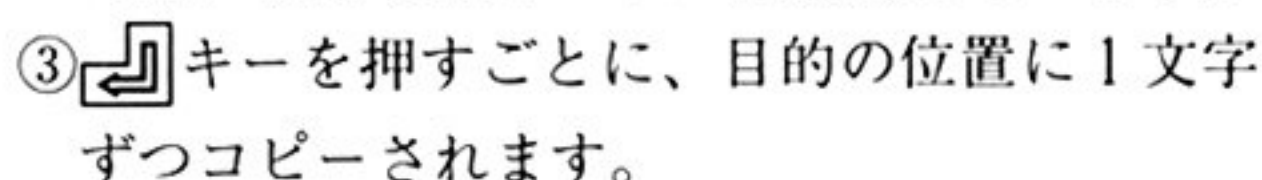 ③⏎キーを押すごとに、目的の位置に1文字
ずつコピーされます。